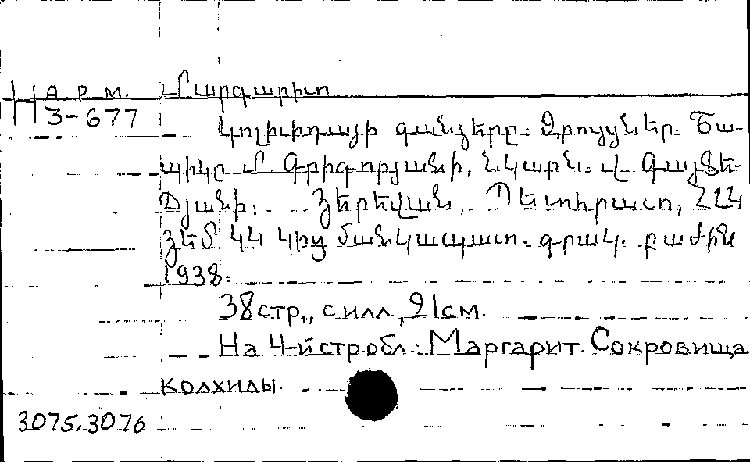 арм.
H3-677
Մարգարիտ
Կոլխիդայի գանձերը. Զրույցներ. Ծա-
պիկը Մ. Գրիգորյանի, նկարն. Վ. Գայֆե-
ջյանի. Յերեվան, Պետհրատ,
մանկապատ. գրակ. բաժին
1938.
38 стр., с илл, 21 см.
На 4-й стр. обл.: Маргарит. Сокровища
Колхиды.
3075.3076